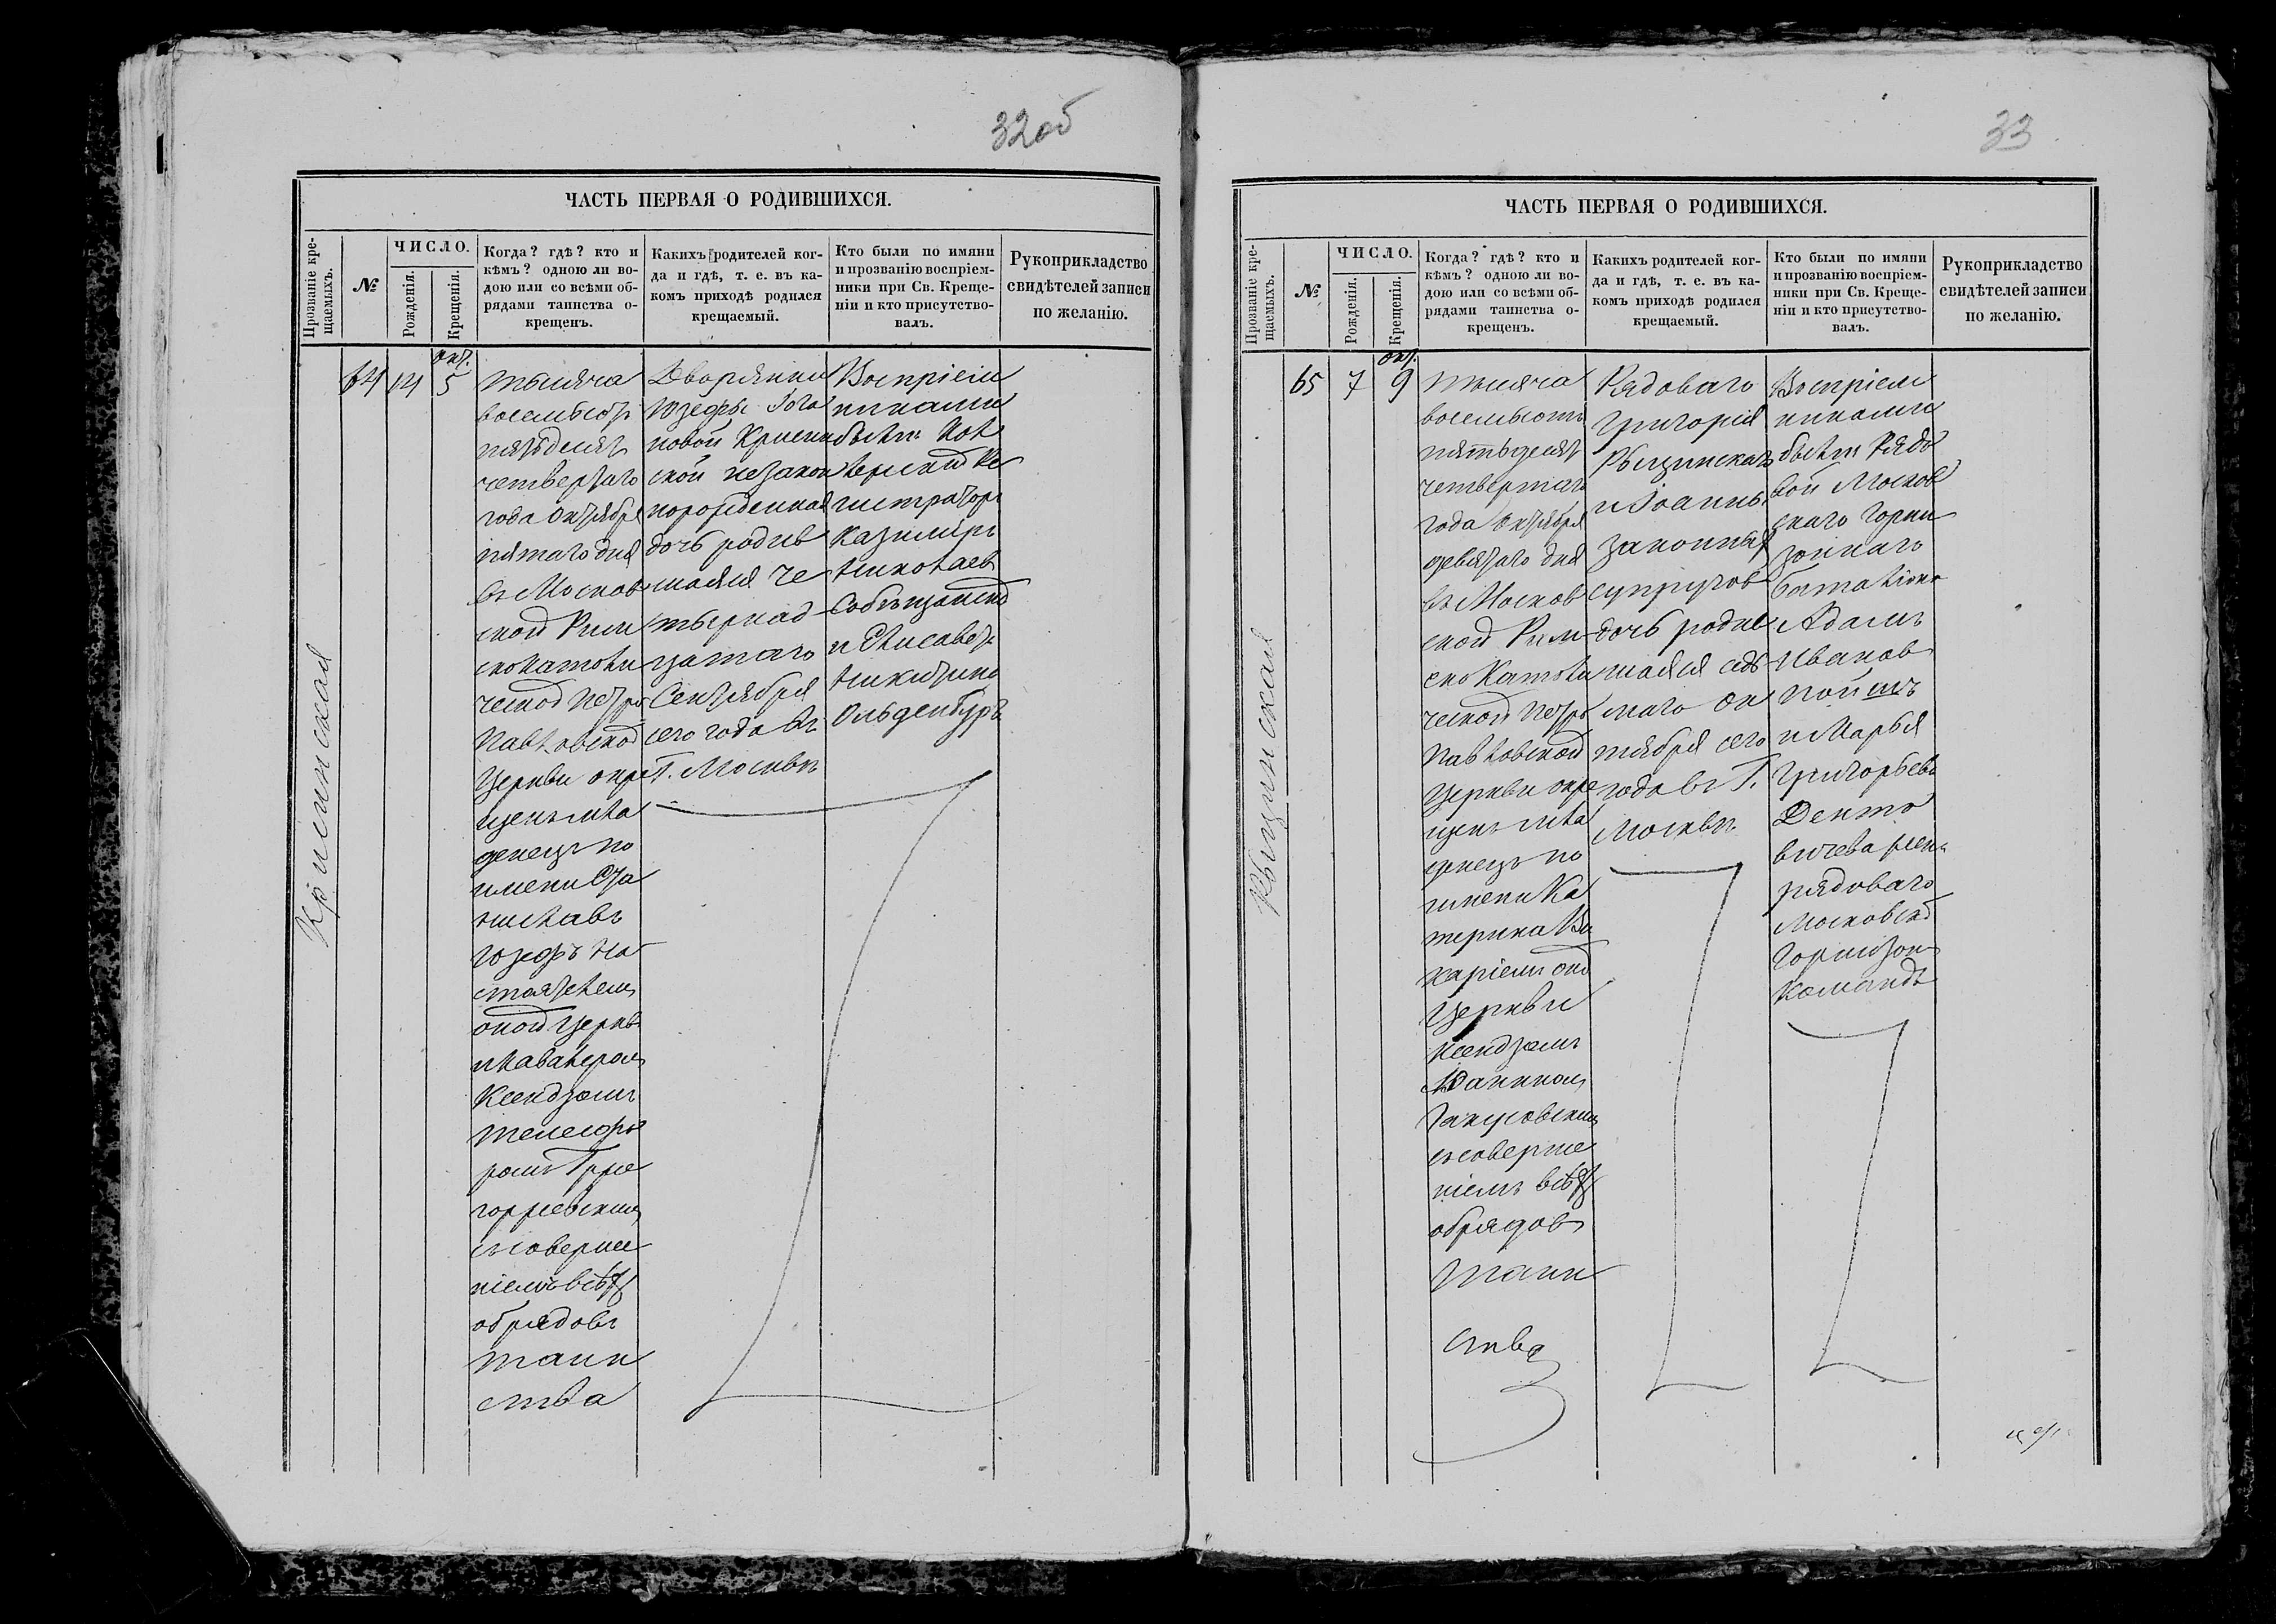 32об
ЧАСТЬ ПЕРВАЯ О РОДИВШИХСЯ.
Прозваніе кре-
щаемыхъ.
№
ЧИСЛО.
Рожденія.
Крещенія.
Когда? гдѣ? кто и
кѣмъ? одною ли во-
дою или со всѣми об-
рядами таинства о-
крещенъ.
Какихъ родителей ког-
да и гдѣ, т. е. въ ка-
комъ приходѣ родился
крещаемый.
Кто были по имяни
и прозванію воспріем-
ники при Св. Креще-
ніи и кто присутство-
валъ.
Рукоприкладство
свидѣтелей записи
по желанію.
64
14
Окт.
5
тысяча
восемьсотъ
пятьдесят
четвертаго
года Октября
пятаго дня
въ Москов
ской Рим
скокатоли
ческой Петро
Павловской
Церкви окре
щенъ мла
денецъ по
имени
Юзефъ На
стоятелемъ
оной Церкв
и Кавалеромъ
Ксендзомъ
съ соверше
ніемъ всѣхъ
обрядовъ
таин
ства
Дворянки
Юзефы
новой
ской незакон
норожденная
дочь родив
шаяся че
тырнад
цатаго
Сентября
сего года въ
Г. Москвѣ
Воспріем
никами
были Кол
лежскій Ре
гистраторъ
Казиміръ
Николаев
и Елисавета
Никитина
Ольденбургъ
33
ЧАСТЬ ПЕРВАЯ О РОДИВШИХСЯ.
Прозваніе кре-
щаемыхъ.
№
ЧИСЛО.
Рожденія.
Крещенія.
Когда? гдѣ? кто и
кѣмъ? одною ли во-
дою или со всѣми об-
рядами таинства о-
крещенъ.
Какихъ родителей ког-
да и гдѣ, т. е. въ ка-
комъ приходѣ родился
крещаемый.
Кто были по имяни
и прозванію воспріем-
ники при Св. Креще-
ніи и кто присутство-
валъ.
Рукоприкладство
свидѣтелей записи
по желанію.
65
7
Окт.
9
тысяча
восемьсотъ
пятьдесят
четвертаго
года Октября
девятаго дня
въ Москов
ской Рим
ско Католи
ческой Петро
Павловской
Церкви окре
щенъ мла
денецъ по
имени Ка
терина Ви
каріемъ оной
Церкви
Ксендзомъ
съ соверше
ніемъ всѣхъ
обрядовъ
таин
ства
Рядоваго
Григорія
и Іоанны
законныхъ
супруговъ
дочь родив
шаяся седь
маго Ок
тября сего
года въ Г.
Москвѣ
Воспріем
никами
были Рядо
вой Москов
скаго Гарни
зоннаго
баталіона
Адамъ
Иванов
и Марья
Григорьева
рядоваго
Московской
Гарнизон
Команды